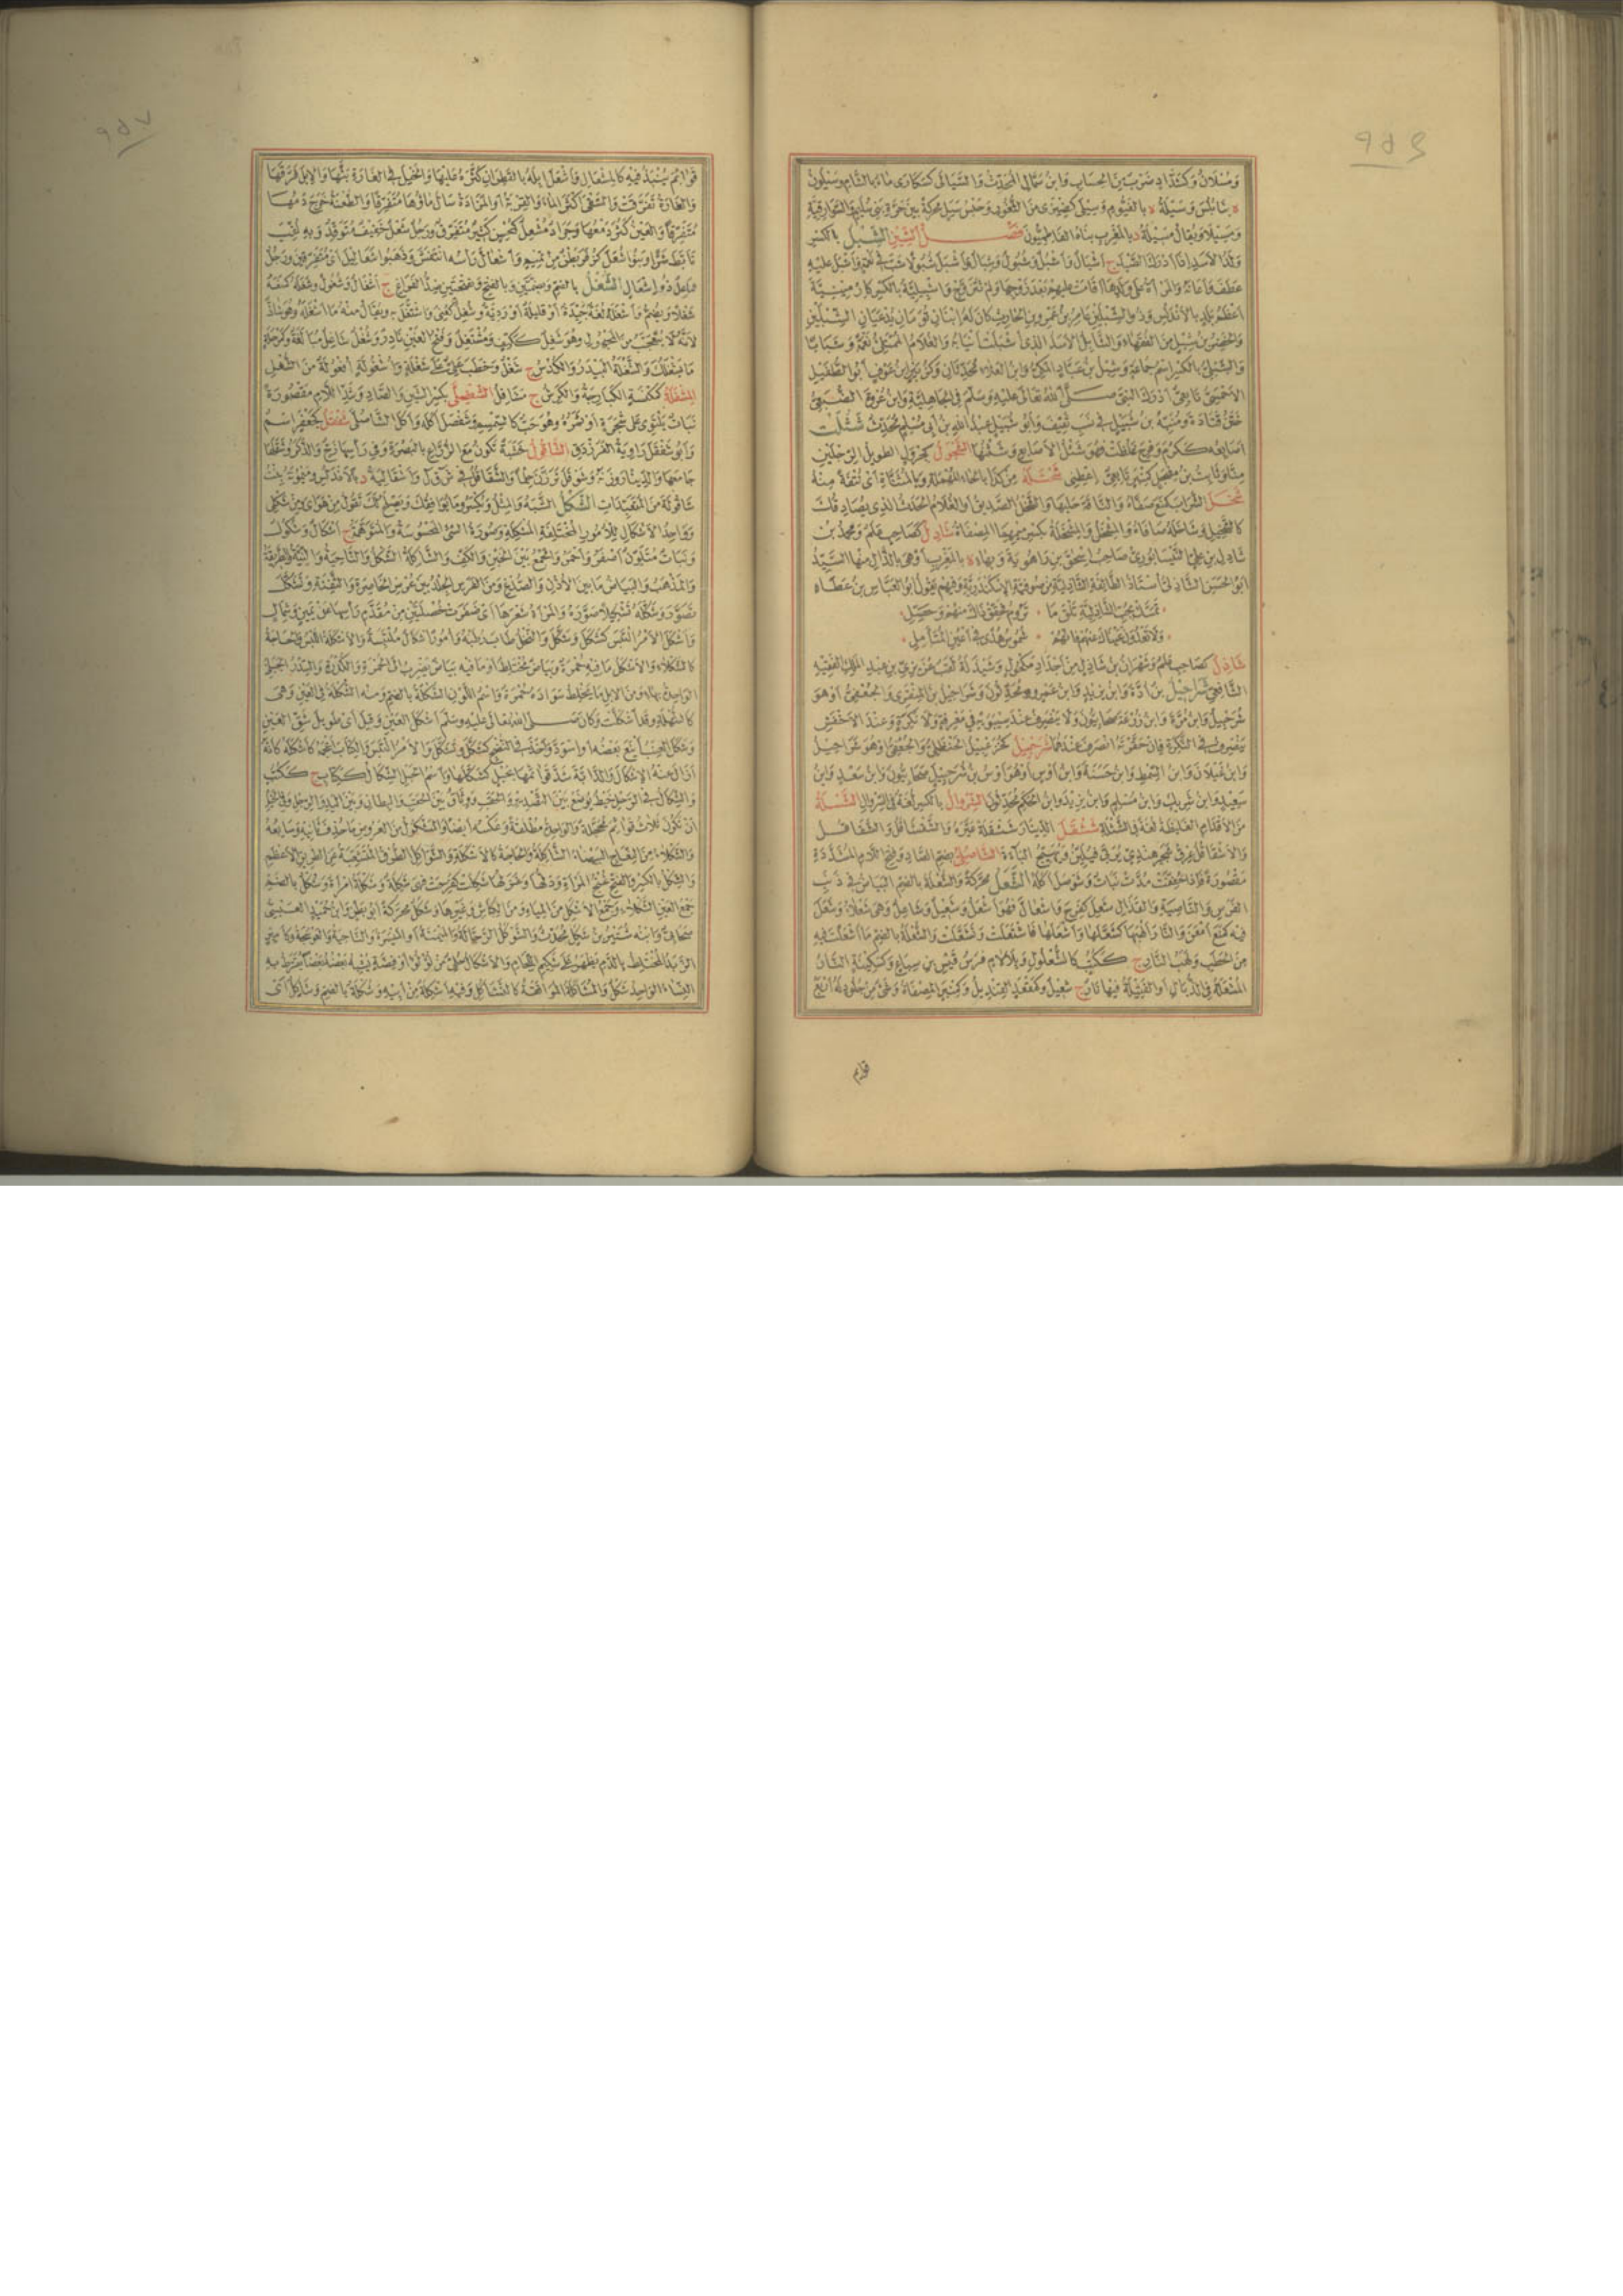 ومسلان وكشداد ضرب من الحساب وابن سمال المحدث
بنابلس وسيلة ه بالفيوم وسيلى
وسيلا ويقال مسيلة د بالمغرب بناه الفاطميون فصل الشين الشبل بالكسر
ولد الاسد اذا ادرك الصيد ج اشبال واشبل وشبول وشبال
عطف واعانه والمراة على ولدها اقامت عليهم بعد زوجها ولم تتزوج واشبيلية بالكسر
اعظم بلد بالاندلس وذو الشبلين عامر بن عمرو بن الحارث كان له ابنان توءمان يدعيان الشبلين
والشابل الاسد الذي اشتبكت انيابه والغلام الممتلئ نعمة وشبابا
والشبل بالكسر اسم جماعة وشبل بن عباد المكي وابن العلاء محدثان
الاحمسي تابعي ادرك النبي صلى الله تعالى عليه وسلم في الجاهلية وابن عزرة الضبعي
ختن قتادة ومنبه بن شبيل في نسب ثقيف وابو شبيل عبيد الله بن ابي مسلم محدث شثلت
اصابعه ككرم وفرح غلظت فهو شثل الاصابع وشثنها الشجول كجرول الطويل الرجلين
شحتلة من كذا بالحاء المهملة وبالمثناة اي نتفة منه
شخل الشراب كمنع صفاه والناقة حلبها والشخل الصديق او الغلام الحدث الذي يصادقك
كالشخيل وشاخله صافاه والمشخل والمشخلة بكسر ميمهما المصفاة شادل كصاحب علم ومحمد بن
شادل بن علي النيسابوري صاحب اسحق بن راهويه وبهاء ه بالمغرب او هي بالذال منها السيد
ابو الحسن الشاذلي استاذ الطائفة الشاذلية من صوفية الاسكندرية وفيهم يقول ابو العباس بن عطاء
تمسك بحب الشاذلية تلق ما تروم فحقق ذاك منهم وحصل
ولا تعدون عيناك عنهم فانهم شموس هدى في اعين المتامل
شاذل كصاحب علم
الشافعي شراحيل بن ادة وابن يزيد وابن عمرو محدثون وشراحيل المنقري والجعفي او هو
شرحبيل وابن مرة وابن زرعة صحابيون ولا ينصرف عند سيبويه في معرفة ولا نكرة وعند الاخفش
ينصرف في النكرة فان حقرته انصرف عندهما شرحبيل
وابن غيلان وابن السمط وابن حسنة وابن اوس او هو اوس بن شرحبيل صحابيون وابن سعد وابن
سعيد وابن شريك وابن مسلم وابن يزيد وابن الحكم محدثون الشروال بالكسر لغة في السروال الششلة
من الاقدام الغليظة لغة في الشثلة ششقل الدينار ششقلة عيره والششقاقل والشقاقل
والاشقاقل عرق شجر هندي يربى فيلين ويهيج الباءة الشاصلى بضم الصاد وفتح اللام المشددة
مقصورة فاذا خففت مدت نبات وشوصل اكله الشعل محركة والشعلة بالضم البياض في ذنب
الفرس والناصية والقذال شعل كفرح واشعال فهو اشعل وشعيل وشاعل وهي شعلاء وشعل
فيه كمنع امعن والنار الهبها كشعلها واشعلها فاشتعلت وتشعلت والشعلة بالضم ما اشعلت فيه
من الحطب ولهب النار ج ككتب كالشعلول وبلا لام فرس قيس بن سباع وكسفينة النار
المشتعلة في الذبال او الفتيلة فيها نار ج شعيل وكمقعد القنديل وكمنبر المصفاة وشيء من جلود له اربع
قوائم
قوائم ينبذ فيه كالمشعال واشعل ابله بالقطران كثره عليها والخيل في الغارة بثها والابل فرقها
والغارة تفرقت والسقي اكثر الماء والقربة او المزادة سال ماؤها متفرقا والطعنة خرج دمها
متفرقا والعين كثر دمعها وجراد مشعل كمحسن كثير متفرق ورجل شعل خفيف متوقد وبه لقب
تابط شرا وبنو شعل كزفر بطن من تميم واشعال راسه انتفش وذهبوا شعاليل اي متفرقين ورجل
شاعل ذو اشعال الشغل بالضم وبضمتين وبالفتح وبفتحتين ضد الفراغ ج اشغال وشغول وشغله كمنعه
شغلا ويضم واشغله لغة جيدة او قليلة او رديئة وشغل كعني واشتغل ويقال منه ما اشغله وهو شاذ
لانه لا يتعجب من المجهول وهو شغل ككتف ومشتغل وفتح الغين نادر وشغل شاغل مبالغة وكمرحلة
ما يشغلك والشغلة البيدر والكدس ج شغل وخطب علي على شغلة واشغولة افعولة من الشغل
المشفلة كمكنسة الكبارجة والكرش ج مشافل الشفصلى بكسر الشين والصاد وشد اللام مقصورة
نبات يلتوي على شجرة او ثمره وهو حب كالسمسم وشفصل اكله واكل الشاصلى شفقل كجعفر اسم
وابو شفقل راوية الفرزدق الشاقول خشبة تكون مع الزراع بالبصرة وفي راسها زج والذكر وشقلها
جامعها والدينار وزنه وشوقل ترزن حلما والشقاقل في ش ق ق ل واشقالية د بالاندلس
شاقولة من المتعبدات الشكل الشبه والمثل ويكسر وما يوافقك ويصلح لك تقول من هواي ومن شكلي
وواحد الاشكال للامور المختلفة المشكلة وصورة الشيء المحسوسة والمتوهمة ج اشكال وشكول
ونبات متلون اصفر واحمر والجمع بين الخبن والكف والشاكلة الشكل والناحية والنية والطريقة
والمذهب والبياض ما بين الاذن والصدغ ومن الفرس الجلد بين عرض الخاصرة والثفنة وتشكل
تصور وشكله تشكيلا صوره والمراة شعرها اي ضفرت خصلتين من مقدم راسها عن يمين وشمال
واشكل الامر التبس كشكل وشكل والنخل طاب رطبه وامور اشكال ملتبسة والاشكلة اللبس والحاجة
كالشكلاء والاشكل ما فيه حمرة وبياض مختلط او ما فيه بياض يضرب الى الحمرة والكدرة والسدر الجبلي
الواحدة بهاء ومن الابل ما يخلط سواده حمرة واسم اللون الشكلة بالضم ومنه الشكلة في العين وهي
كالشهلة وقد اشكلت وكان صلى الله تعالى عليه وسلم اشكل العين وقيل اي طويل شق العين
وشكل العنب اينع بعضه او اسود واخذ في النضج كتشكل وشكل والامر التبس والكتاب اعجمه كاشكله كانه
ازال عنه الاشكال والدابة شد قوائمها بحبل كشكلها واسم الحبل الشكال ككتاب ج ككتب
والشكال في الرحل خيط يوضع بين التصدير والحقب ووثاق بين الحقب والبطان وبين اليد والرجل وفي الخيل
ان تكون ثلاث قوائم محجلة والواحدة مطلقة وعكسه ايضا والمشكول من العروض ما حذف ثانيه وسابعه
والشكلاء من النعاج البيضاء الشاكلة والحاجة كالاشكلة والشواكل الطرق المتشعبة عن الطريق الاعظم
والشكل بالكسر والفتح غنج المراة ودلها وغزلها شكلت كفرحت فهي شكلة وشكلة امراة وشكل بالضم
جمع العين الشكلاء وجمع الاشكل من المياه ومن الكباش وغيرها وشكل محركة ابو بطن وابن حميد العبسي
صحابي وابنه شتير بن شكل محدث والشوكل الرجالة والميمنة او الميسرة والناحية والعوسجة وكامير
الزبد المختلط بالدم يظهر على شكيم اللجام والاشكال حلي من لؤلؤ او فضة يشبه بعضه بعضا يقرط به
النساء الواحد شكل والمشاكلة الموافقة كالتشاكل وفيه اشكلة من ابيه وشكلة بالضم وشاكل اي